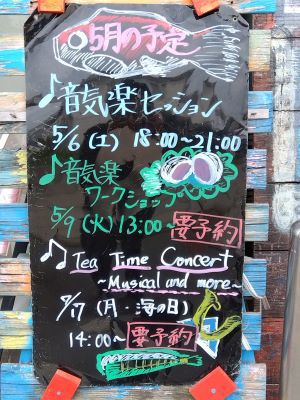 5月の予定
♪音気楽セッション
5/6(土) 18:00~21:00
♪音気楽
ワークショップ
5/9(火) 13:00~ 要予約
♫ Tea Time Concert
~Musical and more~
7/17(月・海の日)
14:00~ 要予約